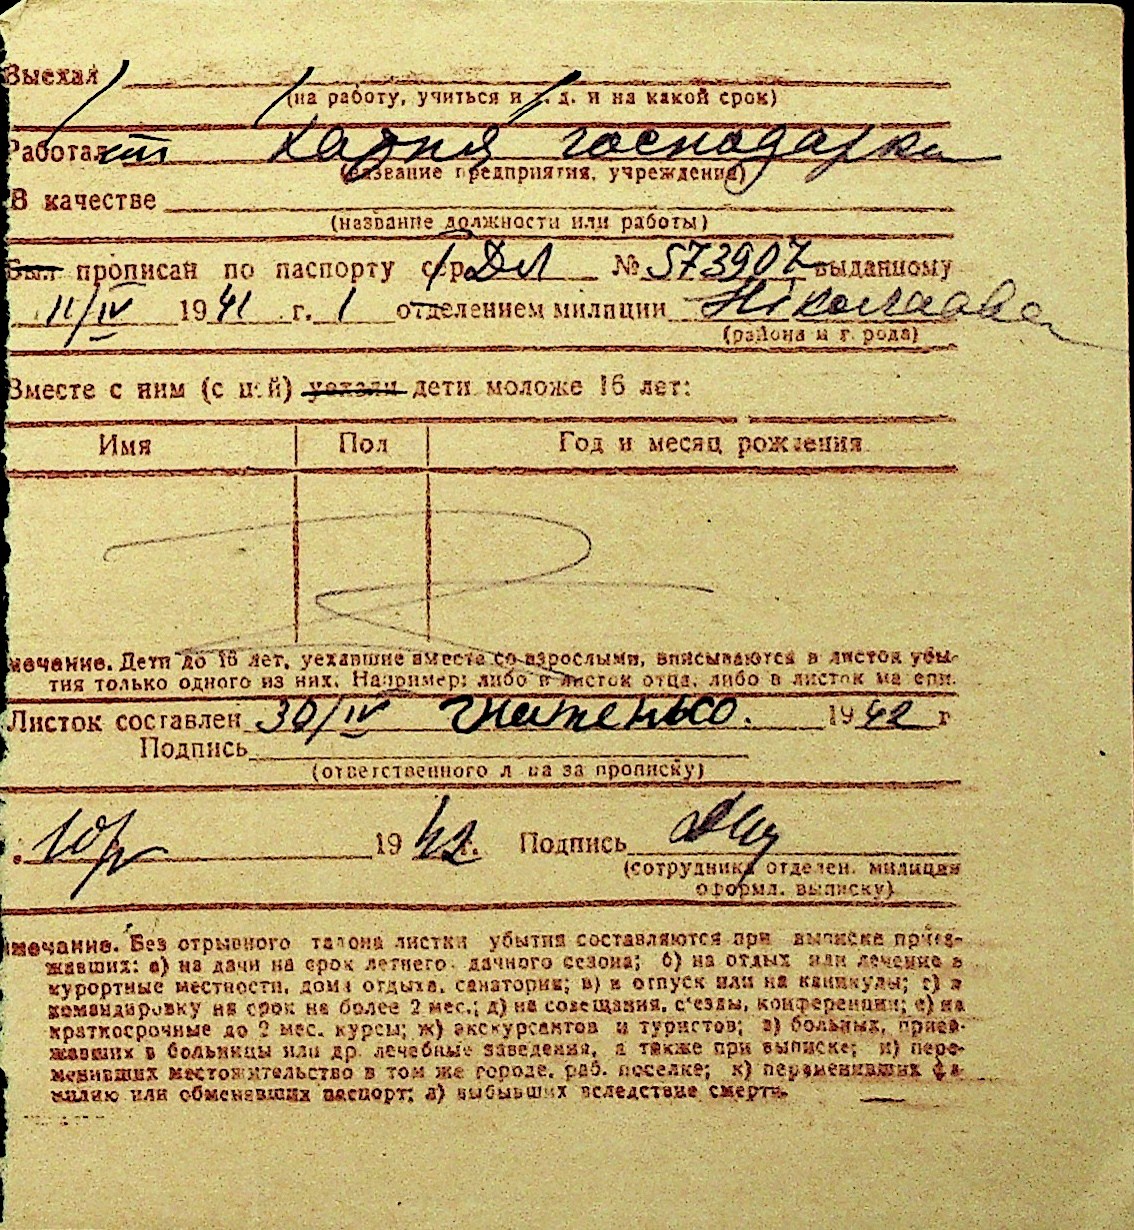 Выехал
(на работу, учиться и т. д. и на какой срок)
Работал Хатня господарка
(название предприятия, учреждения)
В качестве
(название должности или работы)
Был прописан по паспорту сер. № 573907 выданному
11/IV 1941 г. 1 отделением милиции Ніколаєва
(района и города)
Вместе с ним (с ней) уехали дети моложе 16 лет:
Имя Пол Год и месяц рождения
мечание. Дети до 16 лет, уехавшие вместе со взрослыми, вписываются в листок убы-
тия только одного из них. Например: либо в листок отца, либо в листок матери.
Листок составлен 30/IV 1942 г
Подпись
(ответственного лица за прописку)
1942 г. Подпись
(сотрудника отделен. милиции
оформл. выписку)
имечание. Без отрывного талона листки убытия составляются при выписке приез-
жавших: а) на дачи на срок летнего дачного сезона; б) на отдых или лечение в
курортные местности, дома отдыха, санатории; в) в отпуск или на каникулы; г) в
командировку на срок не более 2 мес.; д) на совещания, с'езды, конференции; е) на
краткосрочные до 2 мес. курсы; ж) экскурсантов и туристов; з) больных, приез-
жавших в больницы или др. лечебные заведения, а также при выписке; и) пере-
менивших местожительство в том же городе, раб. поселке; к) переменивших фа-
милию или обменявших паспорт; л) выбывших вследствие смерти.